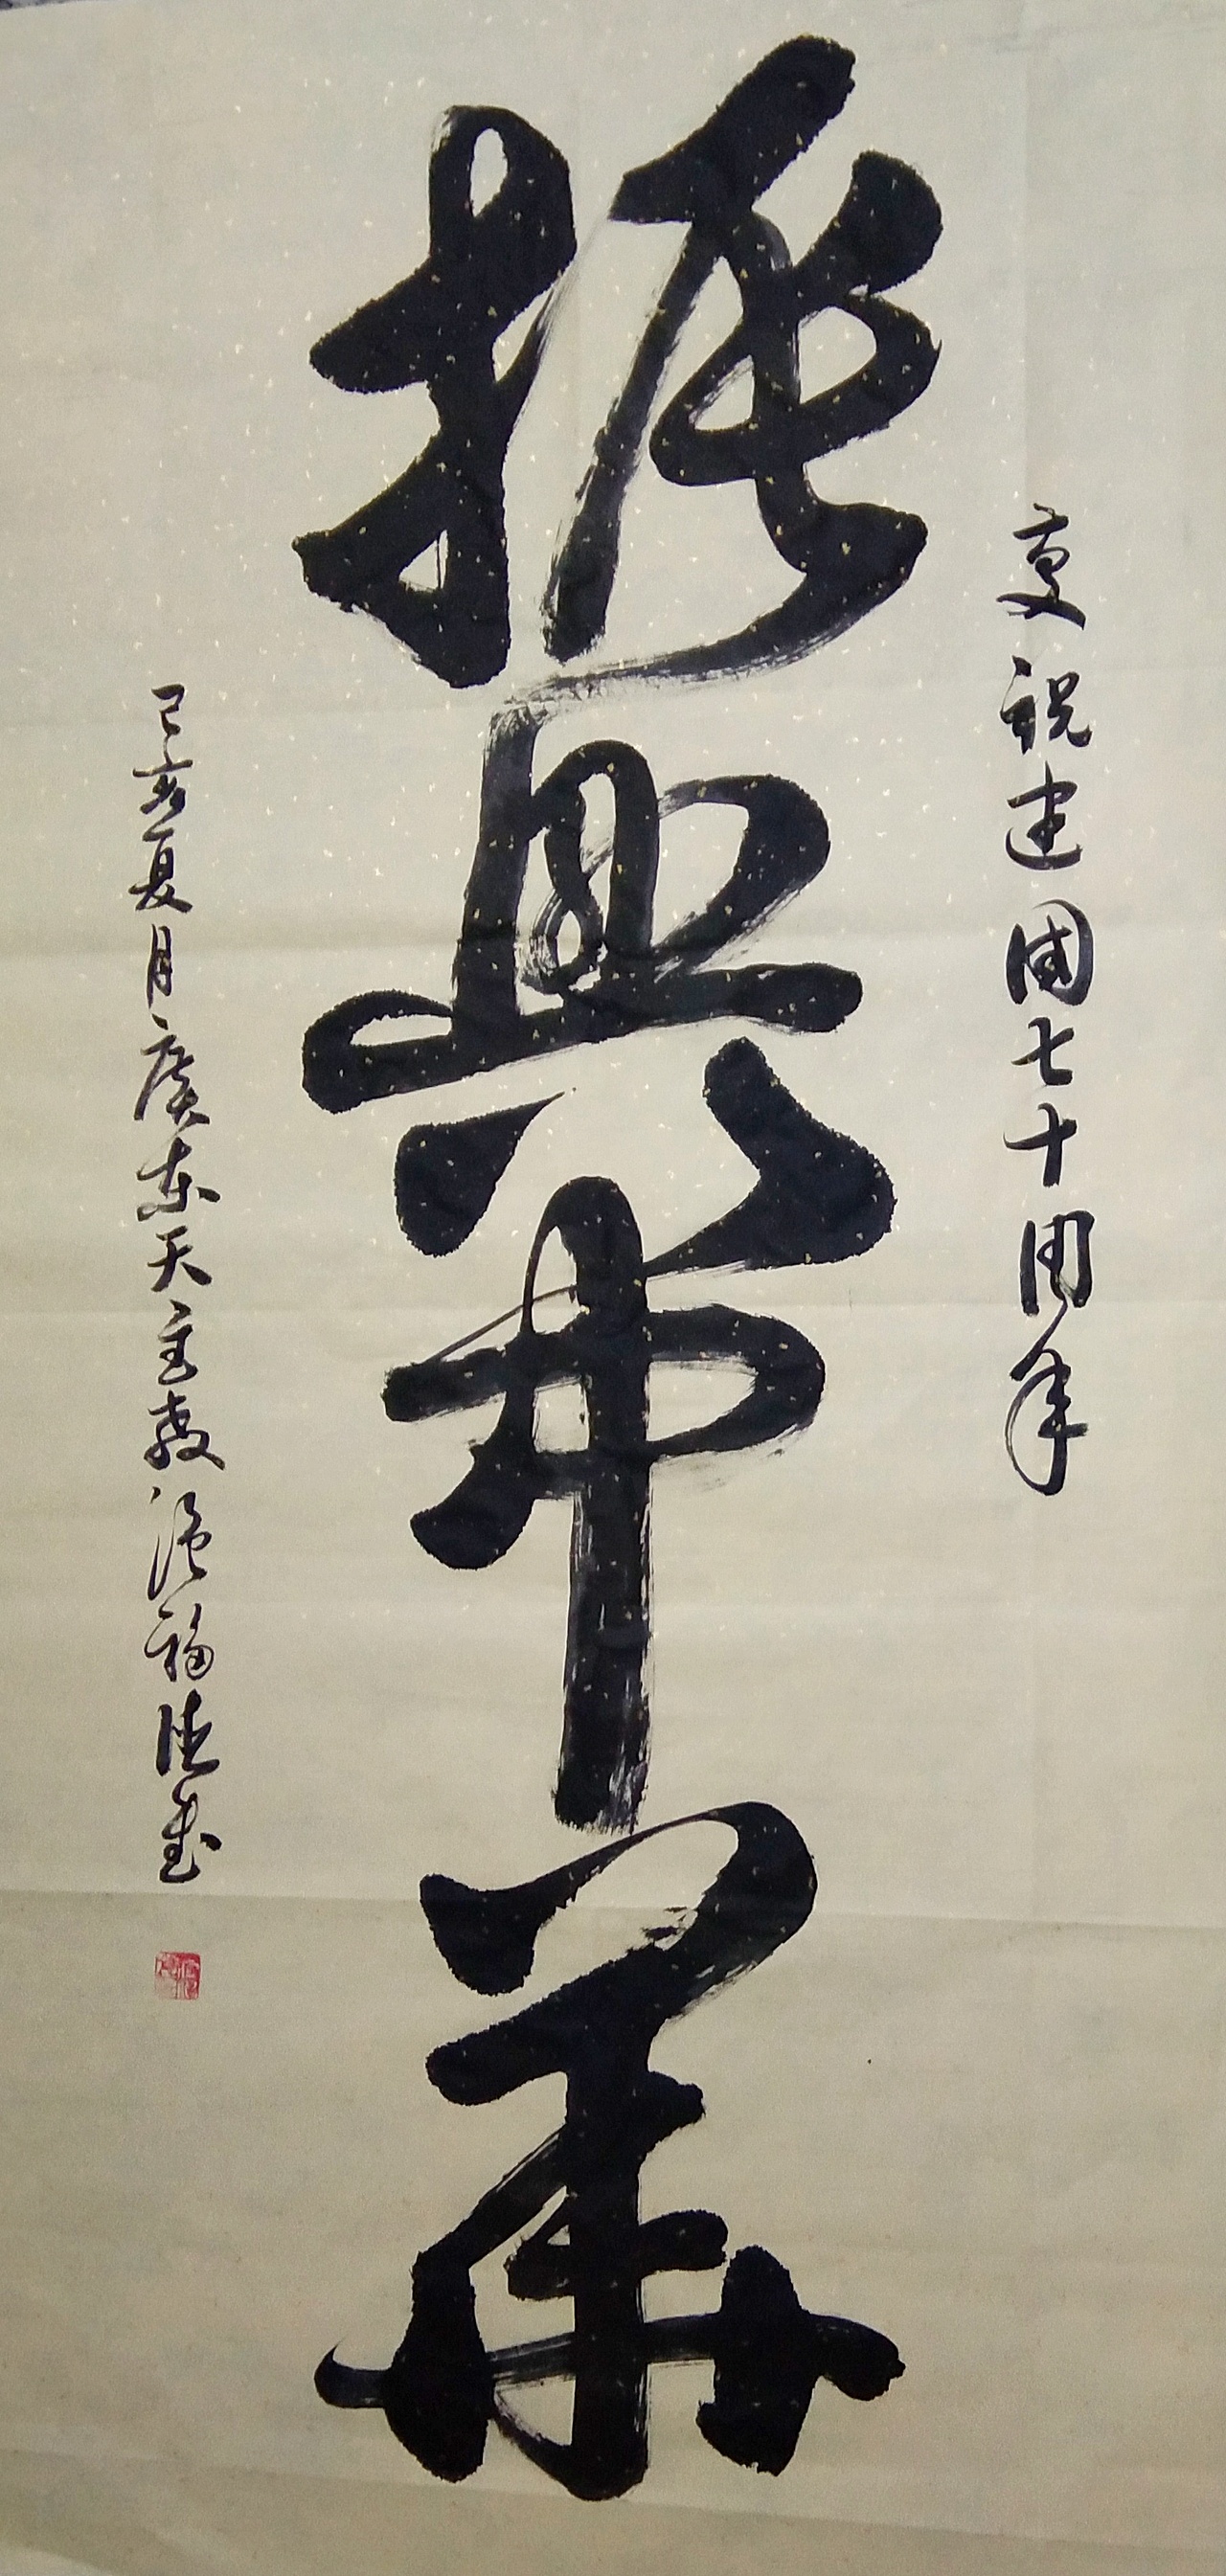 慶祝建國七十周年
振興中華
己亥夏月廣東天主教溫福德書